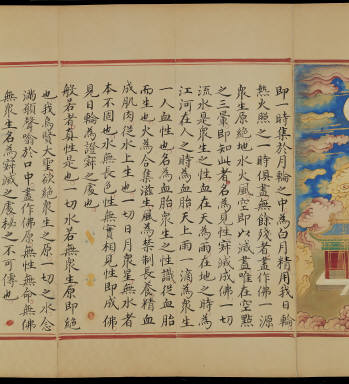 即一時集於月輪之中為白月精用我日輪
熱火照之一時俱盡無餘殘者盡作佛一源
衆生原絶地水火風空即以滅盡唯在空點
之三暈即知此者名為見性寂滅成佛一切
流水是衆生之性血在天為雨在地之時為
江河在人之時為血胎天上雨一滴為衆生
一人血性也名為血胎衆生之性識從血胎
而生也火為合集滋生風為禁制長養精血
成肌肉從水上生也一切日月衆星無水者
本不固也水無長色性無實相見性即成佛
見日輪為證寂之處也
般若者真性是也一切水若無衆生原即絶
也我爲賢大聖欲絶衆生之原一切之水念
滿願聲喻於口中盡作佛原無性無命無佛
無衆生名為寂滅之處秘之不可傳也